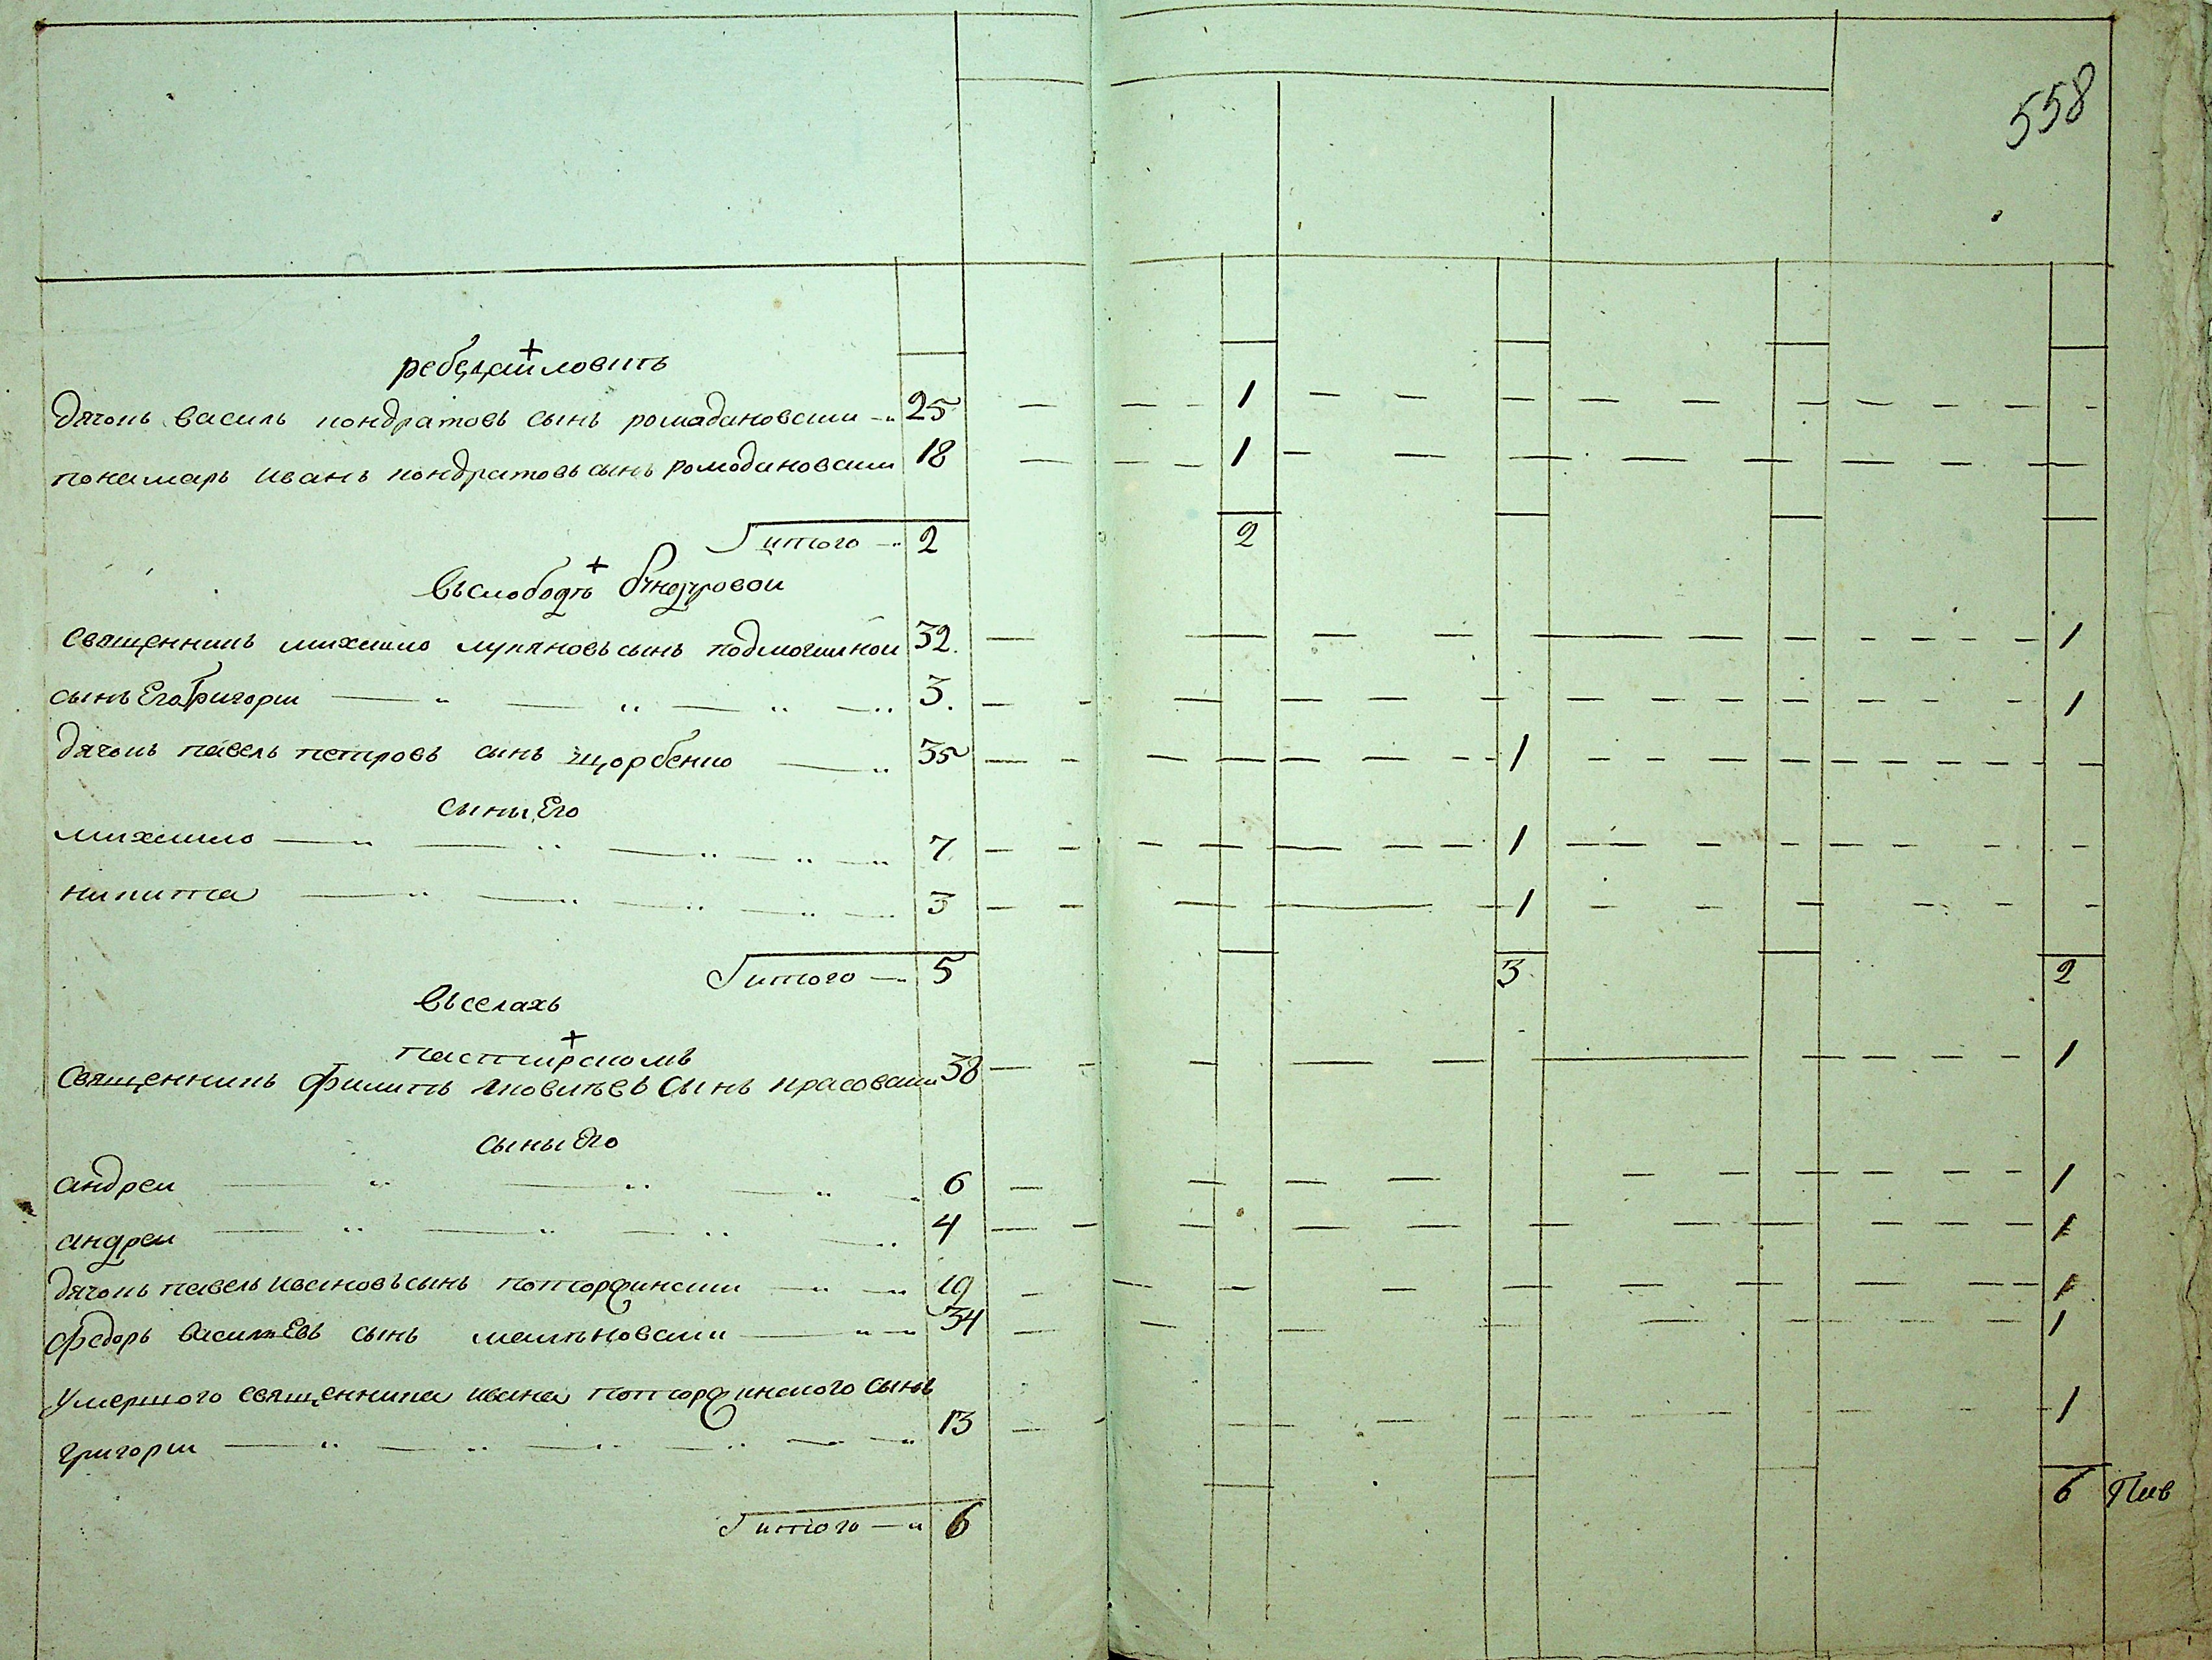 558
ребедаиловить
дячокъ василь кондратовъ сынъ ромадановскии 25 1
понамарь иванъ кондратовъ сынъ ромодановскии 18 1
итого 2 2
въ слободѣ бундуровои
священникъ михаило лукяновъ сынъ подмогилнои 32. 1
сынъ Его Григории 3. 1
дячокъ павелъ петровъ сынъ щорбенко 35 1
сыны Его
михаило 7 1
никита 3 1
итого 5 3 2
въ селахъ
пастирскомъ
священникъ Филипъ яковлевъ сынъ красовскии 38 1
сыны Его
андреи 6 1
андреи 4 1
дячокъ павелъ ивановъ сынъ поторфинскии 19 1
Федоръ василъЕвъ сынъ малѣновскии 34 1
умершого священника ивана поторфинского сынъ
григории 13 1
итого 6 6